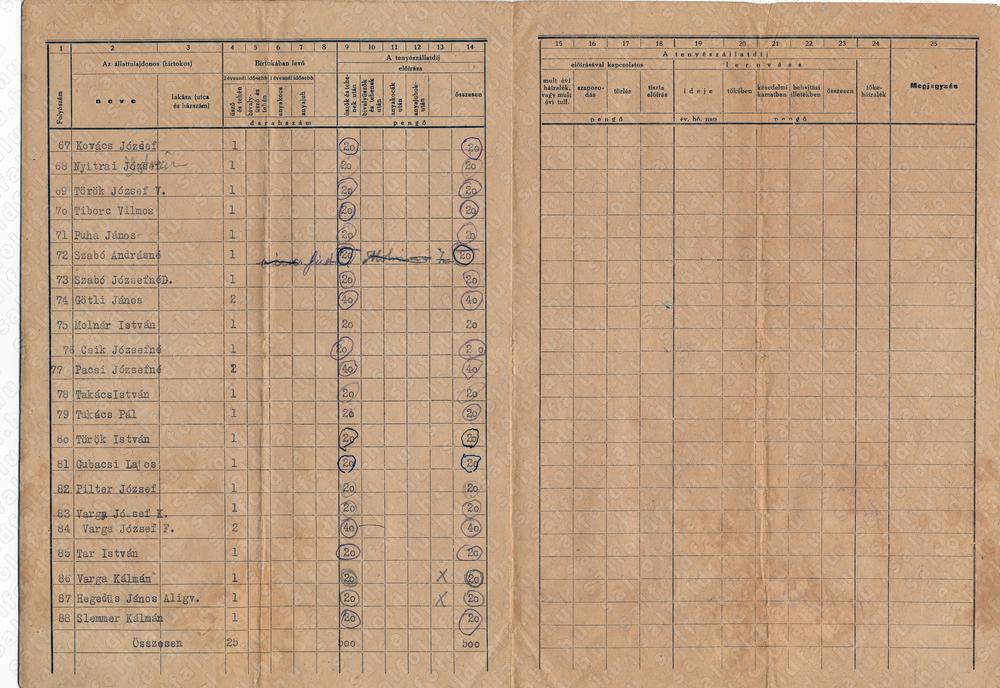 1 2 3 4 5 6 7 8 9 10 11 12 13 14
Folyószám
Az állattulajdonos (birtokos)
neve
lakása (utca és házszám)
Birtokában levő
2 évesnél idősebb 1 évesnél idősebb
üsző és tehén
bivalyüsző és tehén
anyakoca
anyajuh
darabszám
A tenyészállatdíj
előírása
üszők és tehenek után
bivalyüszők és tehenek után
anyakocák után
anyajuhok után
összesen
pengő
67 Kovács József 1 20 20
68 Nyitrai József 1 20 20
69 Török József V. 1 20 20
70 Tiborc Vilmos 1 20 20
71 Puha János 1 20 20
72 Szabó Andrásné 1 20 20
73 Szabó JózsefnéD. 1 20 20
74 Götli János 2 40 40
75 Molnár István 1 20 20
76 Csik Józsefné 1 20 20
77 Pacsi Józsefné 2 40 40
78 TakácsIstván 1 20 20
79 Takács Pál 1 20 20
80 Török István 1 20 20
81 Gubacsi Lajos 1 20 20
82 Pilter József 1 20 20
83 Varga József K. 1 20 20
84 Varga József F. 2 40 40
85 Tar István 1 20 20
86 Varga Kálmán 1 20 X 20
87 Hegedüs János Aligv. 1 20 X 20
88 Slemmer Kálmán 1 20 20
Összesen 25 500 500
15 16 17 18 19 20 21 22 23 24 25
A tenyészállatdíj
előírásával kapcsolatos
lerovása
mult évi hátralék, vagy mult évi túll.
szaporodás
törlés
tiszta előírás
ideje
tőkében
késedelmi kamatban
behajtási illetékben
összesen
tőkehátralék
Megjegyzés
pengő
év, hó, nap
pengő